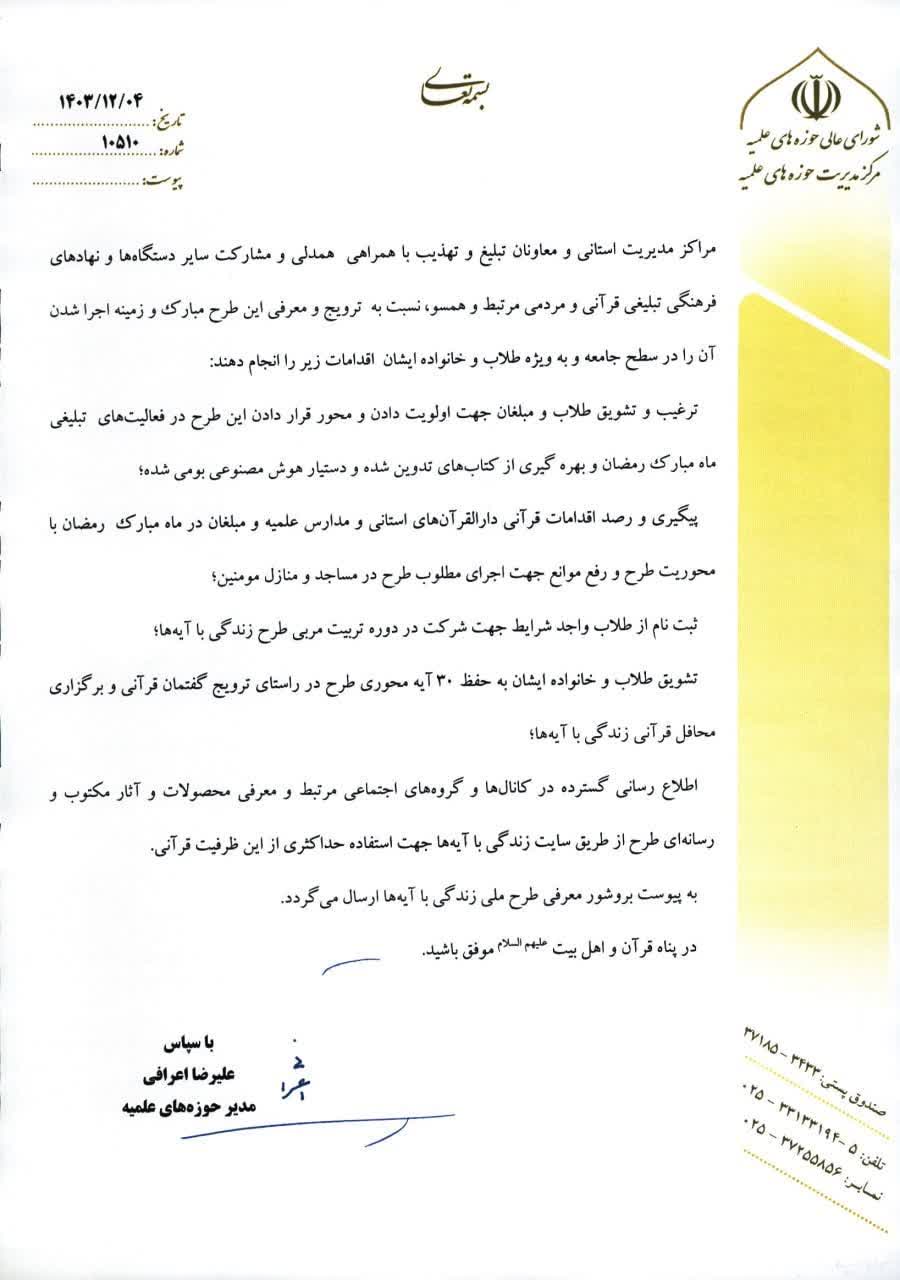 بسمه تعالی
شورای عالی حوزه های علمیه
مرکز مدیریت حوزه های علمیه
تاریخ: ۱۴۰۳/۱۲/۰۴
شماره: ۱۰۵۱۰
پیوست:
مراکز مدیریت استانی و معاونان تبلیغ و تهذیب با همراهی همدلی و مشارکت سایر دستگاه‌ها و نهادهای
فرهنگی تبلیغی قرآنی و مردمی مرتبط و همسو، نسبت به ترویج و معرفی این طرح مبارک و زمینه اجرا شدن
آن را در سطح جامعه و به ویژه طلاب و خانواده ایشان اقدامات زیر را انجام دهند:
ترغیب و تشویق طلاب و مبلغان جهت اولویت دادن و محور قرار دادن این طرح در فعالیت‌های تبلیغی
ماه مبارک رمضان و بهره گیری از کتاب‌های تدوین شده و دستیار هوش مصنوعی بومی شده؛
پیگیری و رصد اقدامات قرآنی دارالقرآن‌های استانی و مدارس علمیه و مبلغان در ماه مبارک رمضان با
محوریت طرح و رفع موانع جهت اجرای مطلوب طرح در مساجد و منازل مومنین؛
ثبت نام از طلاب واجد شرایط جهت شرکت در دوره تربیت مربی طرح زندگی با آیه‌ها؛
تشویق طلاب و خانواده ایشان به حفظ ۳۰ آیه محوری طرح در راستای ترویج گفتمان قرآنی و برگزاری
محافل قرآنی زندگی با آیه‌ها؛
اطلاع رسانی گسترده در کانال‌ها و گروه‌های اجتماعی مرتبط و معرفی محصولات و آثار مکتوب و
رسانه‌ای طرح از طریق سایت زندگی با آیه‌ها جهت استفاده حداکثری از این ظرفیت قرآنی.
به پیوست بروشور معرفی طرح ملی زندگی با آیه‌ها ارسال می‌گردد.
در پناه قرآن و اهل بیت علیهم السلام موفق باشید.
با سپاس
علیرضا اعرافی
مدیر حوزه‌های علمیه
صندوق پستی: ۳۴۳۳ – ۳۷۱۸۵
تلفن: ۵ –۳۳۱۳۳۱۹۴ – ۰۲۵
نمابر: ۳۷۲۵۵۸۵۶ – ۰۲۵